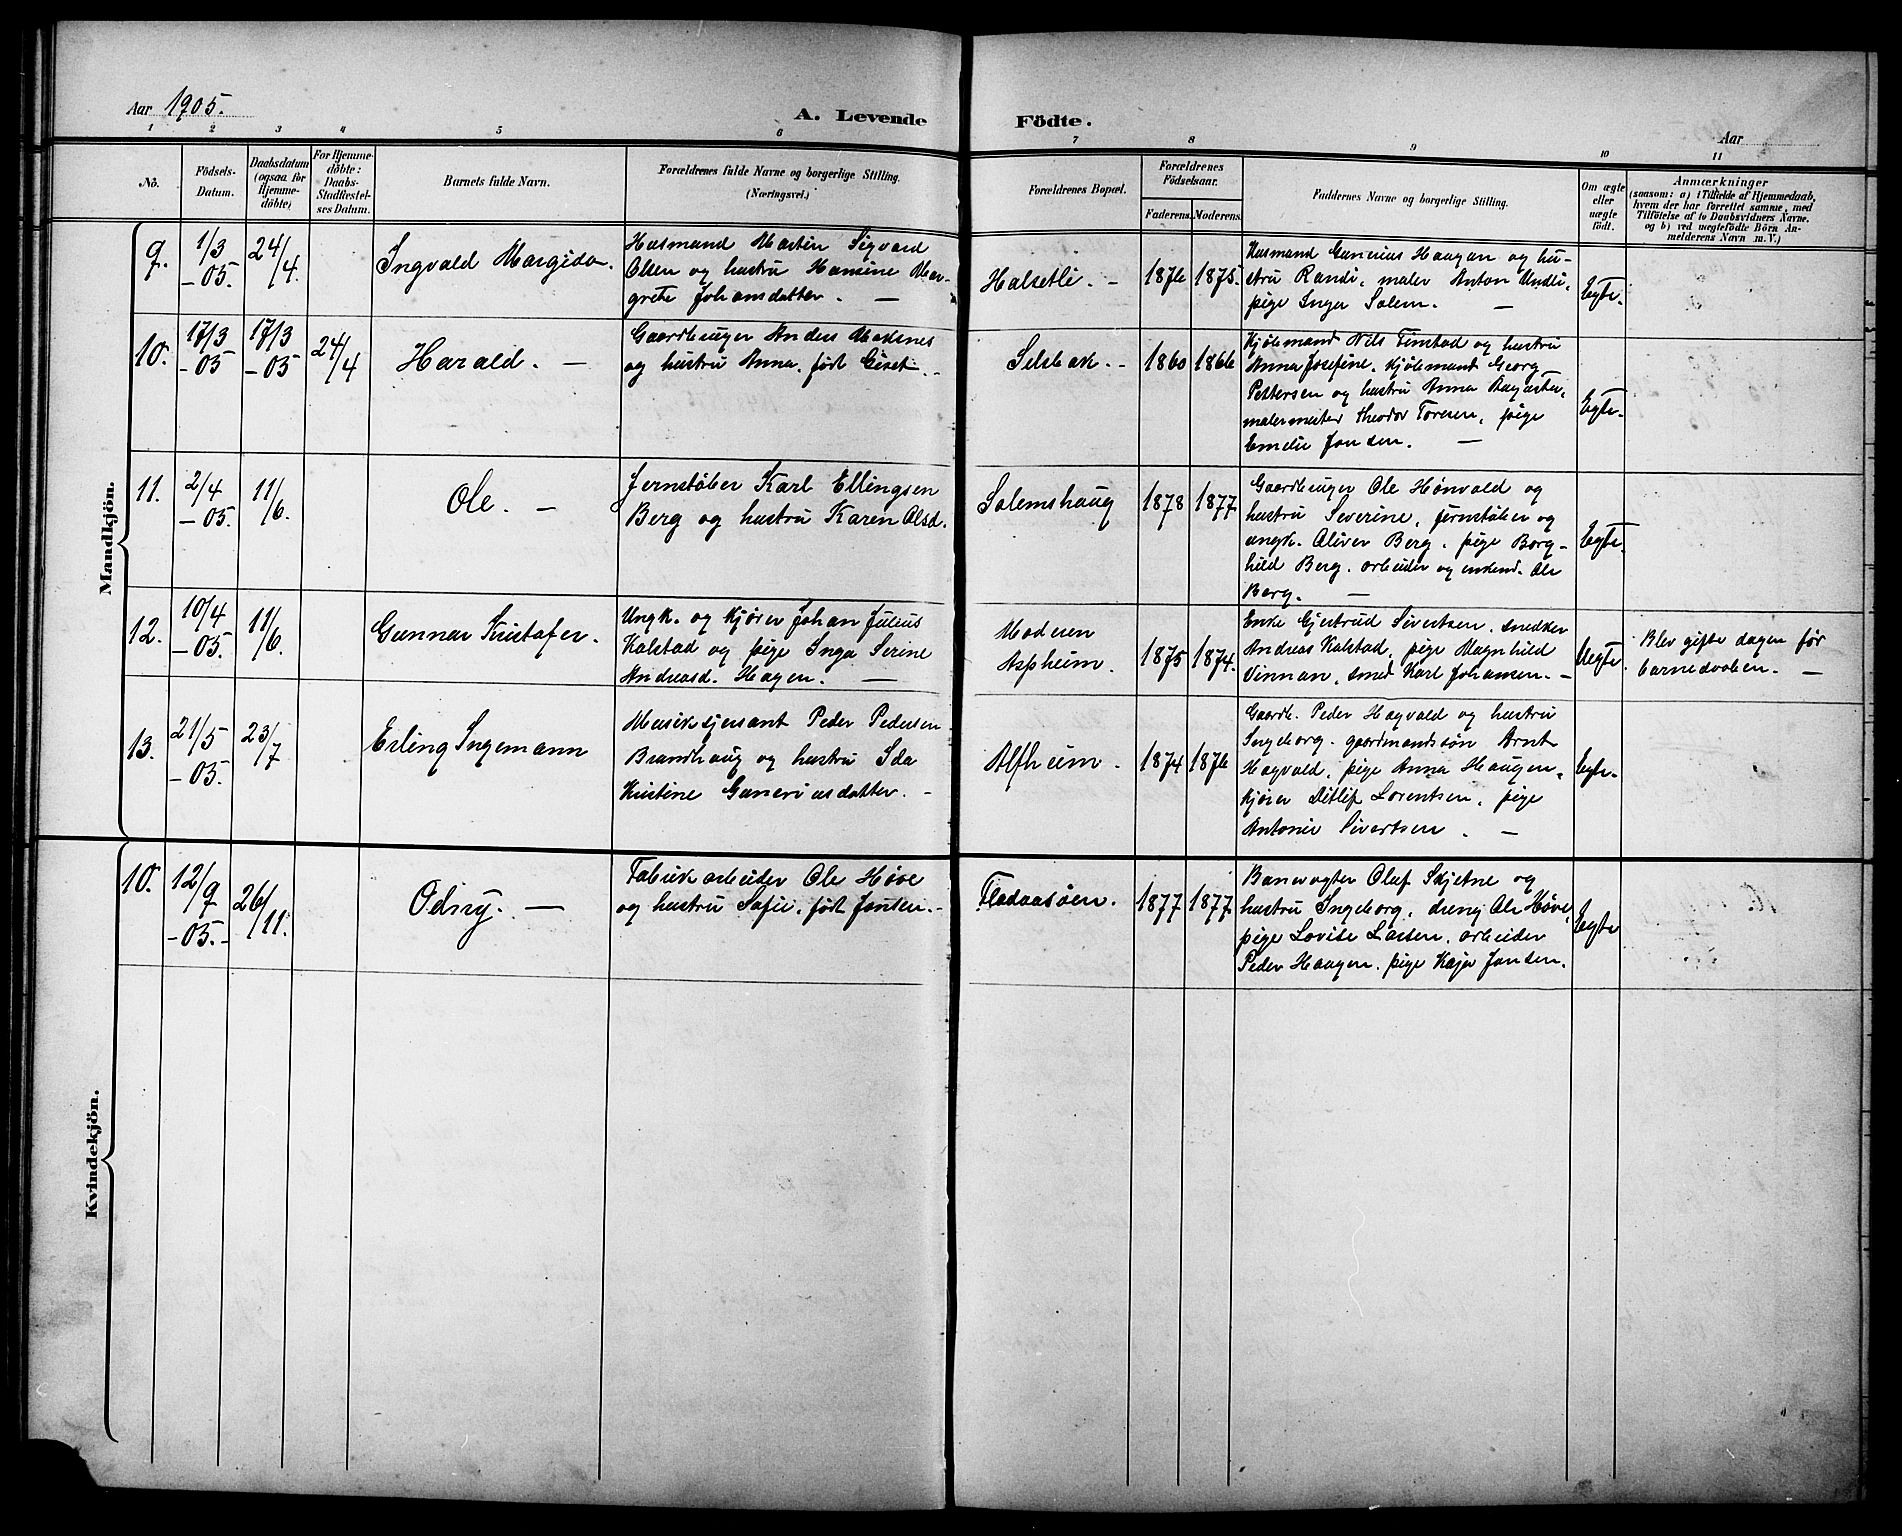 Aar 1905.
A. Levende Födte.
Aar
1 2 3 4 5 6 7 8 9 10 11
No.
Födsels-
Datum.
Daabsdatum
(ogsaa for
Hjemme-
döbte)
For Hjemme-
döbte:
Daabs-
Stadfæstel-
ses Datum.
Barnets fulde Navn.
Forældrenes fulde Navne og borgerlige Stilling.
(Næringsvei.)
Forældrenes Bopæl.
Forældrenes
Födselsaar.
Faderens. Moderens.
Faddernes Navne og borgerlige Stilling.
Om ægte
eller
uægte
født.
Anmærkninger
(saasom: a) i Tilfælde af Hjemmedaab,
hvem der har forrettet samme, med
Tilföielse af to Daabsvidners Navne,
og b) ved uegtefödte Börn An-
melderens Navn m. V.)
Mandkjön.
9.
1/3
-05.
24/4.
Ingvald Margido.
Husmand Martin Sigvard
Olsen og hustru Hansine Mar-
grete Johansdatter. —
Halsetli. -
1876
1875.
Husmand Gunerius Haagen og hu-
stru Randi, maler Anton Undli,
pige Inga Solem. —
Egte.
10.
17/3
-05
17/3
-05
24/4
Harald. —
Gaardbruger Anders Moksnes
og hustru Anna, født Giset. -
Selsbak. -
1860
1866
Kjølemand Nils Finstad og hustru
Anna Josefine, Kjølemand Georg
Pettersen og hustru Anna Augusta,
malermester Theodor Toresen, pige
Emelie Jonsen. —
Egte.
11.
2/4
-05.
11/6.
Ole. —
Jernstøber Karl Ellingsen
Berg og hustru Karen Olsd.
Solemshaug
1878
1877.
Gaardbruger Ole Hønvald og
hustru Severine, jernstøber og
ungk. Oliver Berg, pige Borg-
hild Berg, arbeider og enkemd. Ole
Berg. —
Egte.
12.
10/4
-05.
11/6.
Gunnar Kristofer.
Ungk. og Kjører Johan Julius
Kalstad og pige Inga Serine
Andreasd. Hagen. —
Moderen
Aspheim.
1875
1874.
Enke Gjertrud Sivertsen, snedker
Andreas Kalstad, pige Magnhild
Vinnan, smed Karl Johansen. -
Uegte.
Blev gifte dagen før
barnedaaben. —
13.
21/5
-05.
23/7
Erling Ingemann
Musiksjersant Peder Pedersen
Brandhaug og hustru Ida
Kristine Guneriusdatter. -
Alfheim.
1874
1876
Gaardb. Peder Hagvald og hustru
Ingeborg, gaardmandssøn Arnt
Hagvald, pige Anna Haugen,
kjører Ditlef Lorentsen, pige
Antonie Sivertsen. —
Egte.
Kvindekjön.
10.
12/9
-05.-
26/11.
Odny. —
Fabrikarbeider Ole Høve
og hustru Sofie, født Jonsen. -
Flodaasøen.
1877
1877.
Banevogter Oluf Skjetne og
hustru Ingeborg, dreng Ole Høve,
pige Lovise Larsen, arbeider
Peder Haagen, pige Kaja Jonsen.
Egte